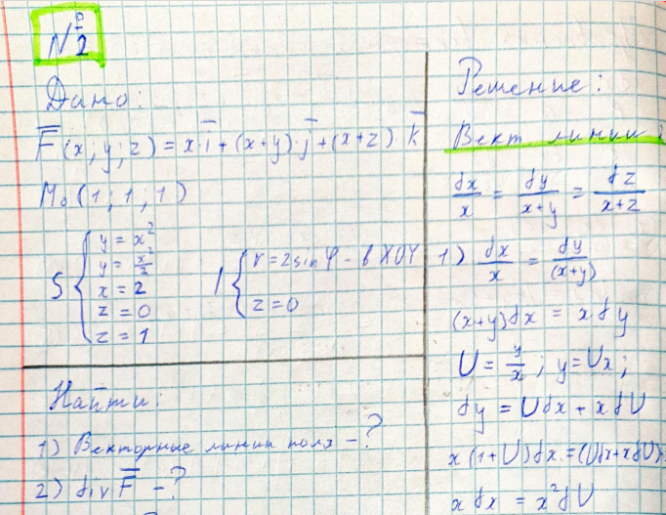 № 2
Дано:
F̅(x; y; z) = x·i̅ + (x+y)·j̅ + (x+z)·k̅
M₀(1; 1; 1)
S { y = x²
y = x²/2
x = 2
z = 0
z = 1
l { r = 2sinφ - в XOY
z = 0
Найти:
1) Векторные линии поля - ?
2) div F̅ - ?
Решение:
Вект. линии:
dx/x = dy/(x+y) = dz/(x+z)
1) dx/x = dy/(x+y)
(x+y)dx = xdy
U = y/x ; y = Ux;
dy = Udx + xdU
x(1+U)dx = (Udx+xdU)
xdx = x²dU